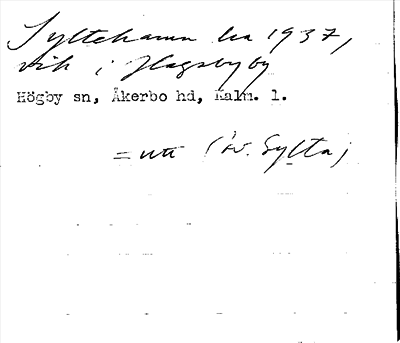 Syltehamn ka 1937,
vik i Hagabyby
Högby sn, Åkerbo hd, Kalm. l.
= utt (äv. Sylta)